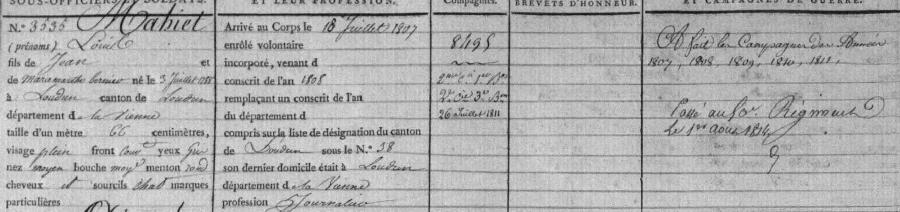 SOUS-OFFICIERS
ET LEUR PROFESSION.
Compagnies.
BREVETS D'HONNEUR.
ET CAMPAGNES DE GUERRE.
N.º 3535 Mahiet
(prénoms) Louis
fils de Jean et
de né le 3 Juillet
à Loudun canton de Loudun
département de la Vienne
taille d'un mètre 66 centimètres,
visage plein front yeux
nez moyen bouche moy menton rond
cheveux et sourcils chat marques
particulières
Arrivé au Corps le 15 Juillet 1807
enrôlé volontaire
incorporé, venant d
conscrit de l'an 1808
remplaçant un conscrit de l'an
du département d
compris sur la liste de désignation du canton
de Loudun sous le N.º 38
son dernier domicile était à Loudun
département de la Vienne
profession Journalier
8495
26 Juillet 1811
A fait les Campagnes des Années
1807, 1808, 1809, 1810, 1811,
Passé au Régiment
le 1er août 1814